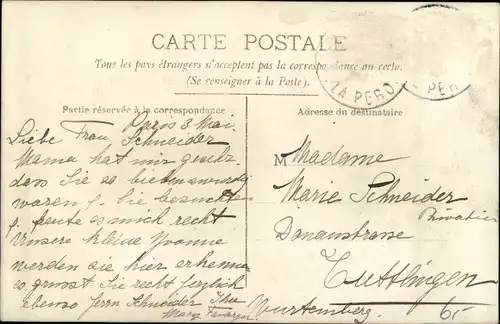 CARTE POSTALE
Tous les pays étrangers n'acceptent pas la correspondance au recto.
(Se renseigner à la Poste).
LA PERO
PER
Partie réservée à la correspondance
Adresse du destinataire
Paris 3 Mai.
Liebe Frau Schneider
Mama hat mir
dass Sie so
waren
freute es mich recht
Unsere kleine Yvonne
werden sie hier erkennen
es grüsst Sie recht herzlich
ebenso Herrn Schneider Ihre
Mary
M Madame
Marie Schneider
Privatier
Donaustrasse
Tuttlingen
Wurtemberg.